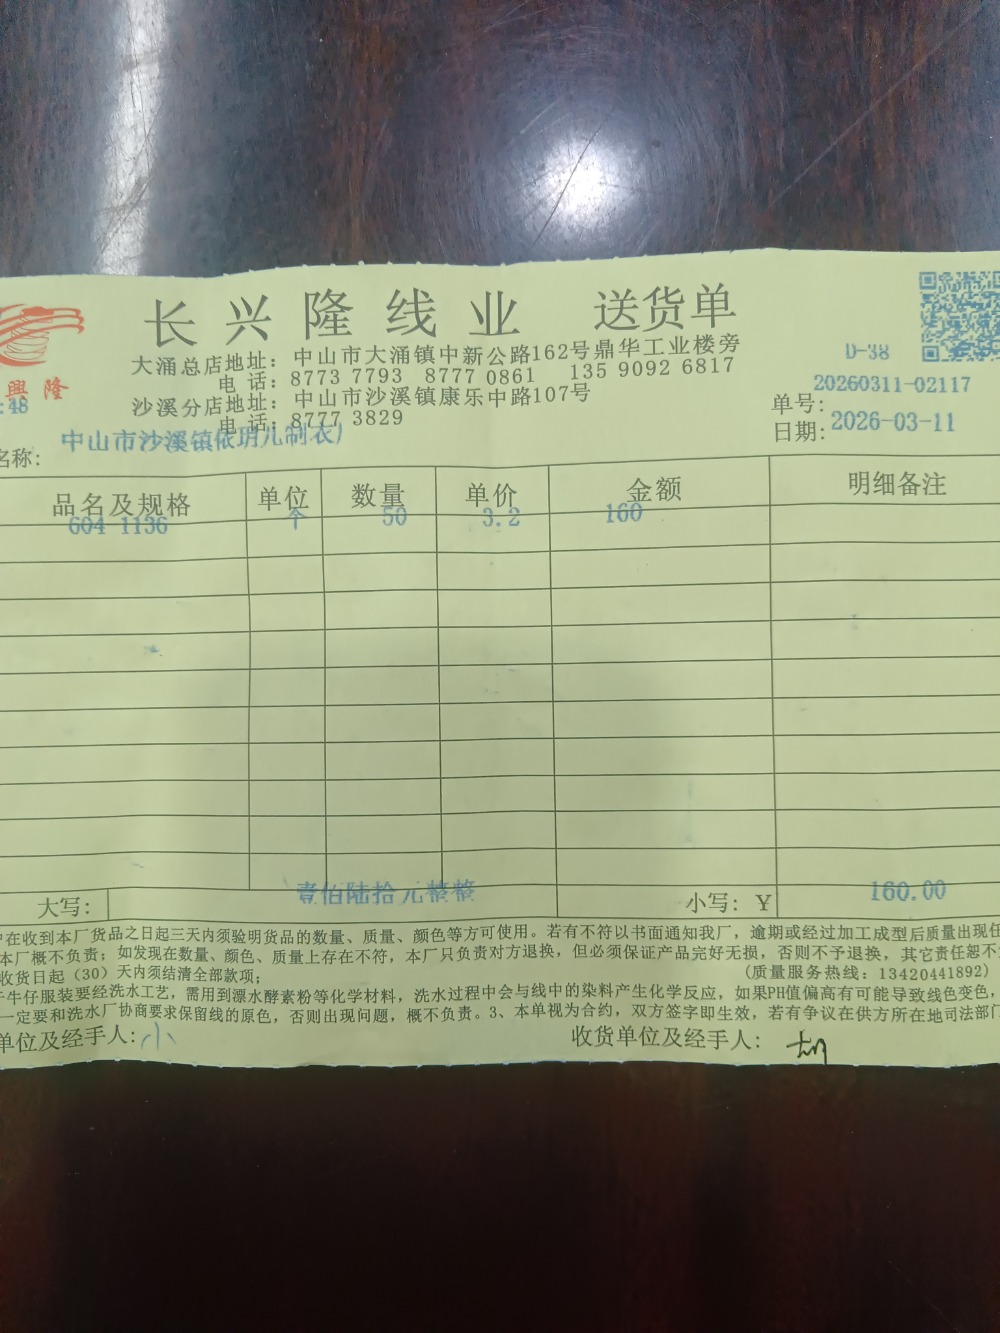 长兴隆线业 送货单
興隆
大涌总店地址：中山市大涌镇中新公路162号鼎华工业楼旁
电话：8773 7793 8777 0861 135 9092 6817
沙溪分店地址：中山市沙溪镇康乐中路107号
电话：8777 3829
D-38
:48
单号：20260311-02117
日期：2026-03-11
名称：中山市沙溪镇依玥儿制衣厂
品名及规格 单位 数量 单价 金额 明细备注
604 1136 个 50 3.2 160
大写：壹佰陆拾元整整 小写：Y 160.00
在收到本厂货品之日起三天内须验明货品的数量、质量、颜色等方可使用。若有不符以书面通知我厂，逾期或经过加工成型后质量出现任
本厂概不负责；如发现在数量、颜色、质量上存在不符，本厂只负责对方退换，但必须保证产品完好无损，否则不予退换，其它责任恕不
收货日起（30）天内须结清全部款项； （质量服务热线：13420441892）
牛仔服装要经洗水工艺，需用到漂水酵素粉等化学材料，洗水过程中会与线中的染料产生化学反应，如果PH值偏高有可能导致线色变色，
一定要和洗水厂协商要求保留线的原色，否则出现问题，概不负责。3、本单视为合约，双方签字即生效，若有争议在供方所在地司法部门
单位及经手人：小 收货单位及经手人：胡